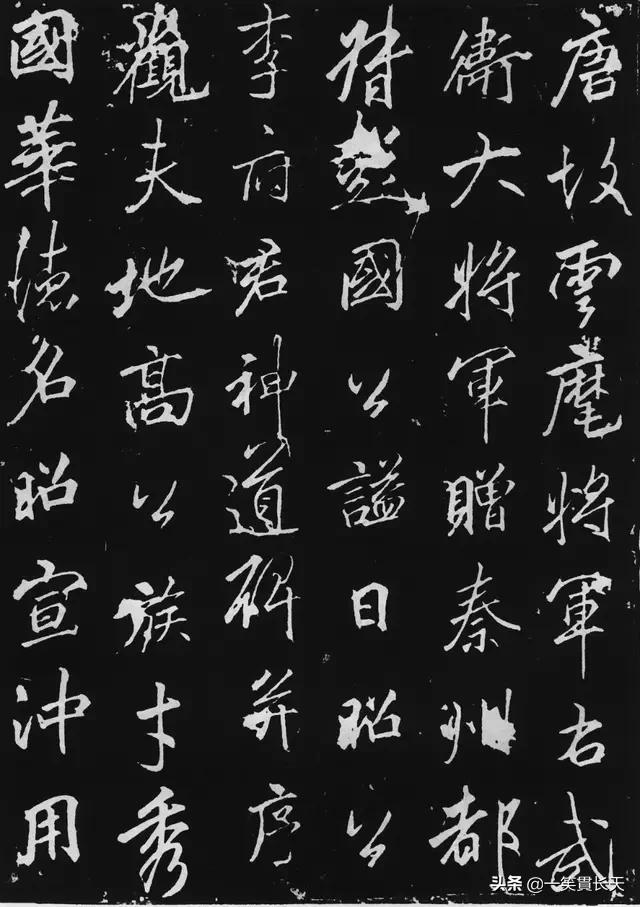 唐故雲麾將軍右武
衛大將軍贈秦州都
督國公謚曰昭公
李府君神道碑并序
觀夫地高公族才秀
國華德名昭宣沖用
头条 @一笑貫长天